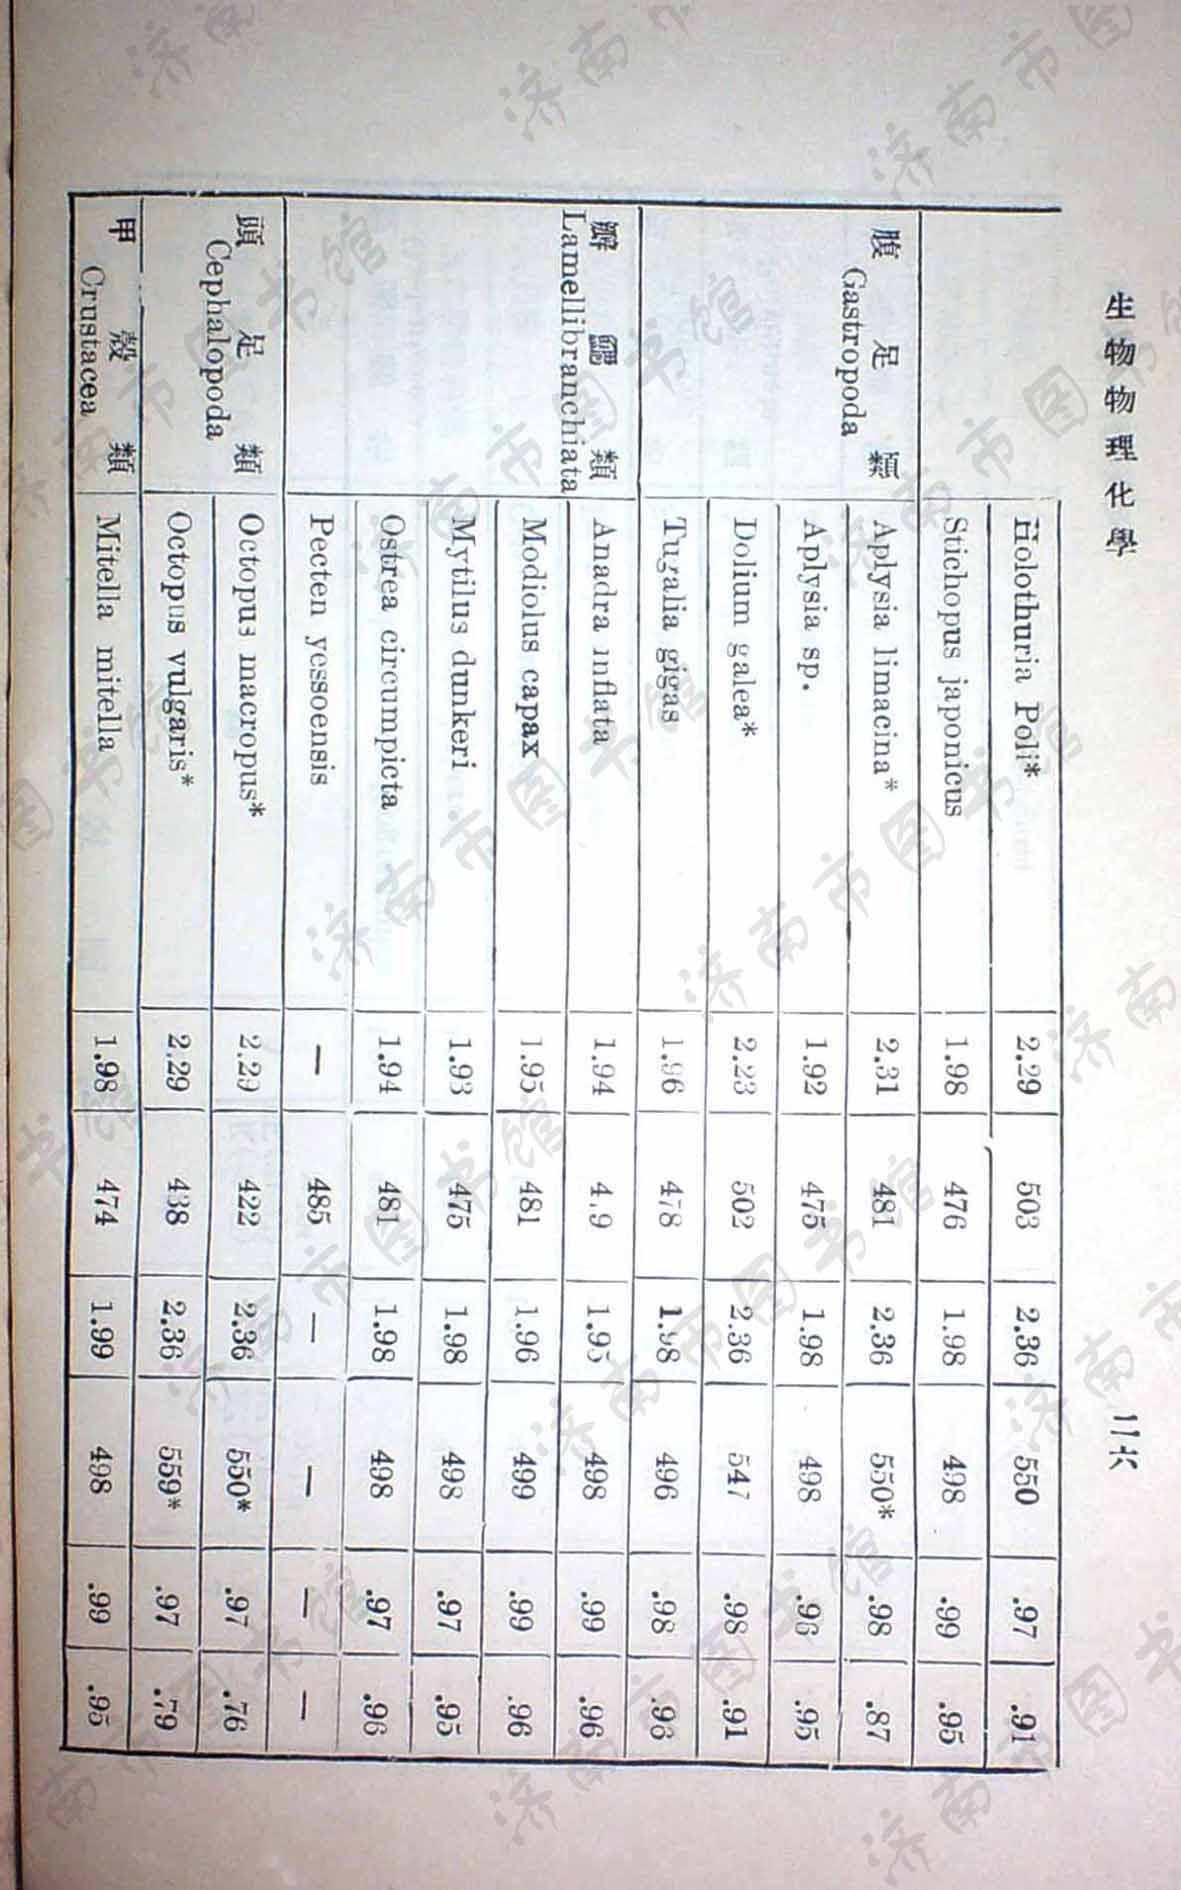 生物物理化學
二六
Holothuria Poli* 2.29 503 2.36 550 .97 .91
Stichopus japonicus 1.98 476 1.98 498 .99 .95
腹足類 Gastropoda
Aplysia limacina* 2.31 481 2.36 550* .98 .87
Aplysia sp. 1.92 475 1.98 498 .96 .95
Dolium galea* 2.23 502 2.36 547 .98 .91
Tugalia gigas 1.96 478 1.98 496 .98 .96
瓣鰓類 Lamellibranchiata
Anadra inflata 1.94 1.95 498 .99 .96
Modiolus capax 1.95 481 1.96 499 .99 .96
Mytilus dunkeri 1.93 475 1.98 498 .97 .95
Ostrea circumpicta 1.94 481 1.98 498 .97 .96
Pecten yessoensis — 485 — — — —
頭足類 Cephalopoda
Octopus macropus* 2.29 422 2.36 550* .97 .76
Octopus vulgaris* 2.29 438 2.36 559* .97 .79
甲殼類 Crustacea
Mitella mitella 1.98 474 1.99 498 .99 .95
济南市图书馆